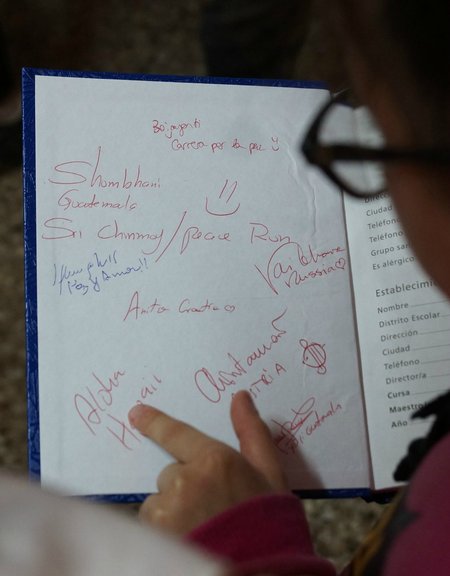 Carrera por la paz
Shambhavi
Guatemala
Sri Chinmoy / Peace Run
Paz y Amor!!
Russia
Anita Croatia
Aloha
Hawaii
Guatemala
Ciudad
Teléfono
Teléfono
Grupo san
Es alérgico
Establecimi
Nombre
Distrito Escolar
Dirección
Ciudad
Teléfono
Director/a
Cursa
Maestro
Año